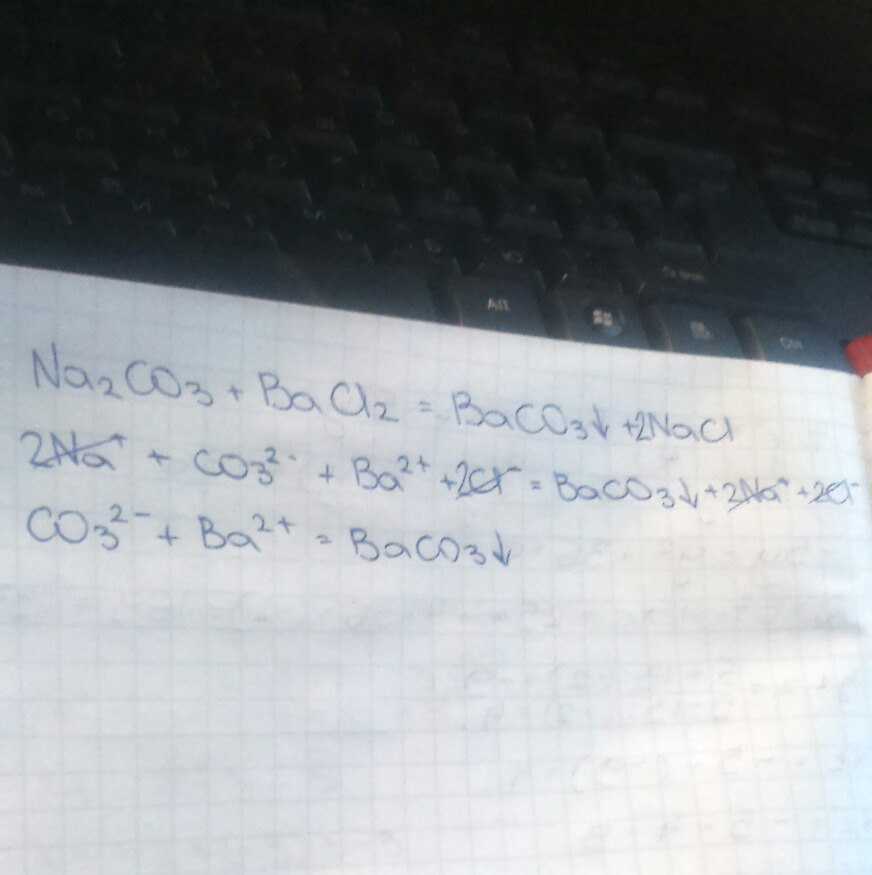 Alt
Ctrl
Na₂CO₃ + BaCl₂ = BaCO₃↓ +2NaCl
2Na⁺ + CO₃²⁻ + Ba²⁺ +2Cl⁻ = BaCO₃↓ +2Na⁺ +2Cl⁻
CO₃²⁻ + Ba²⁺ = BaCO₃↓